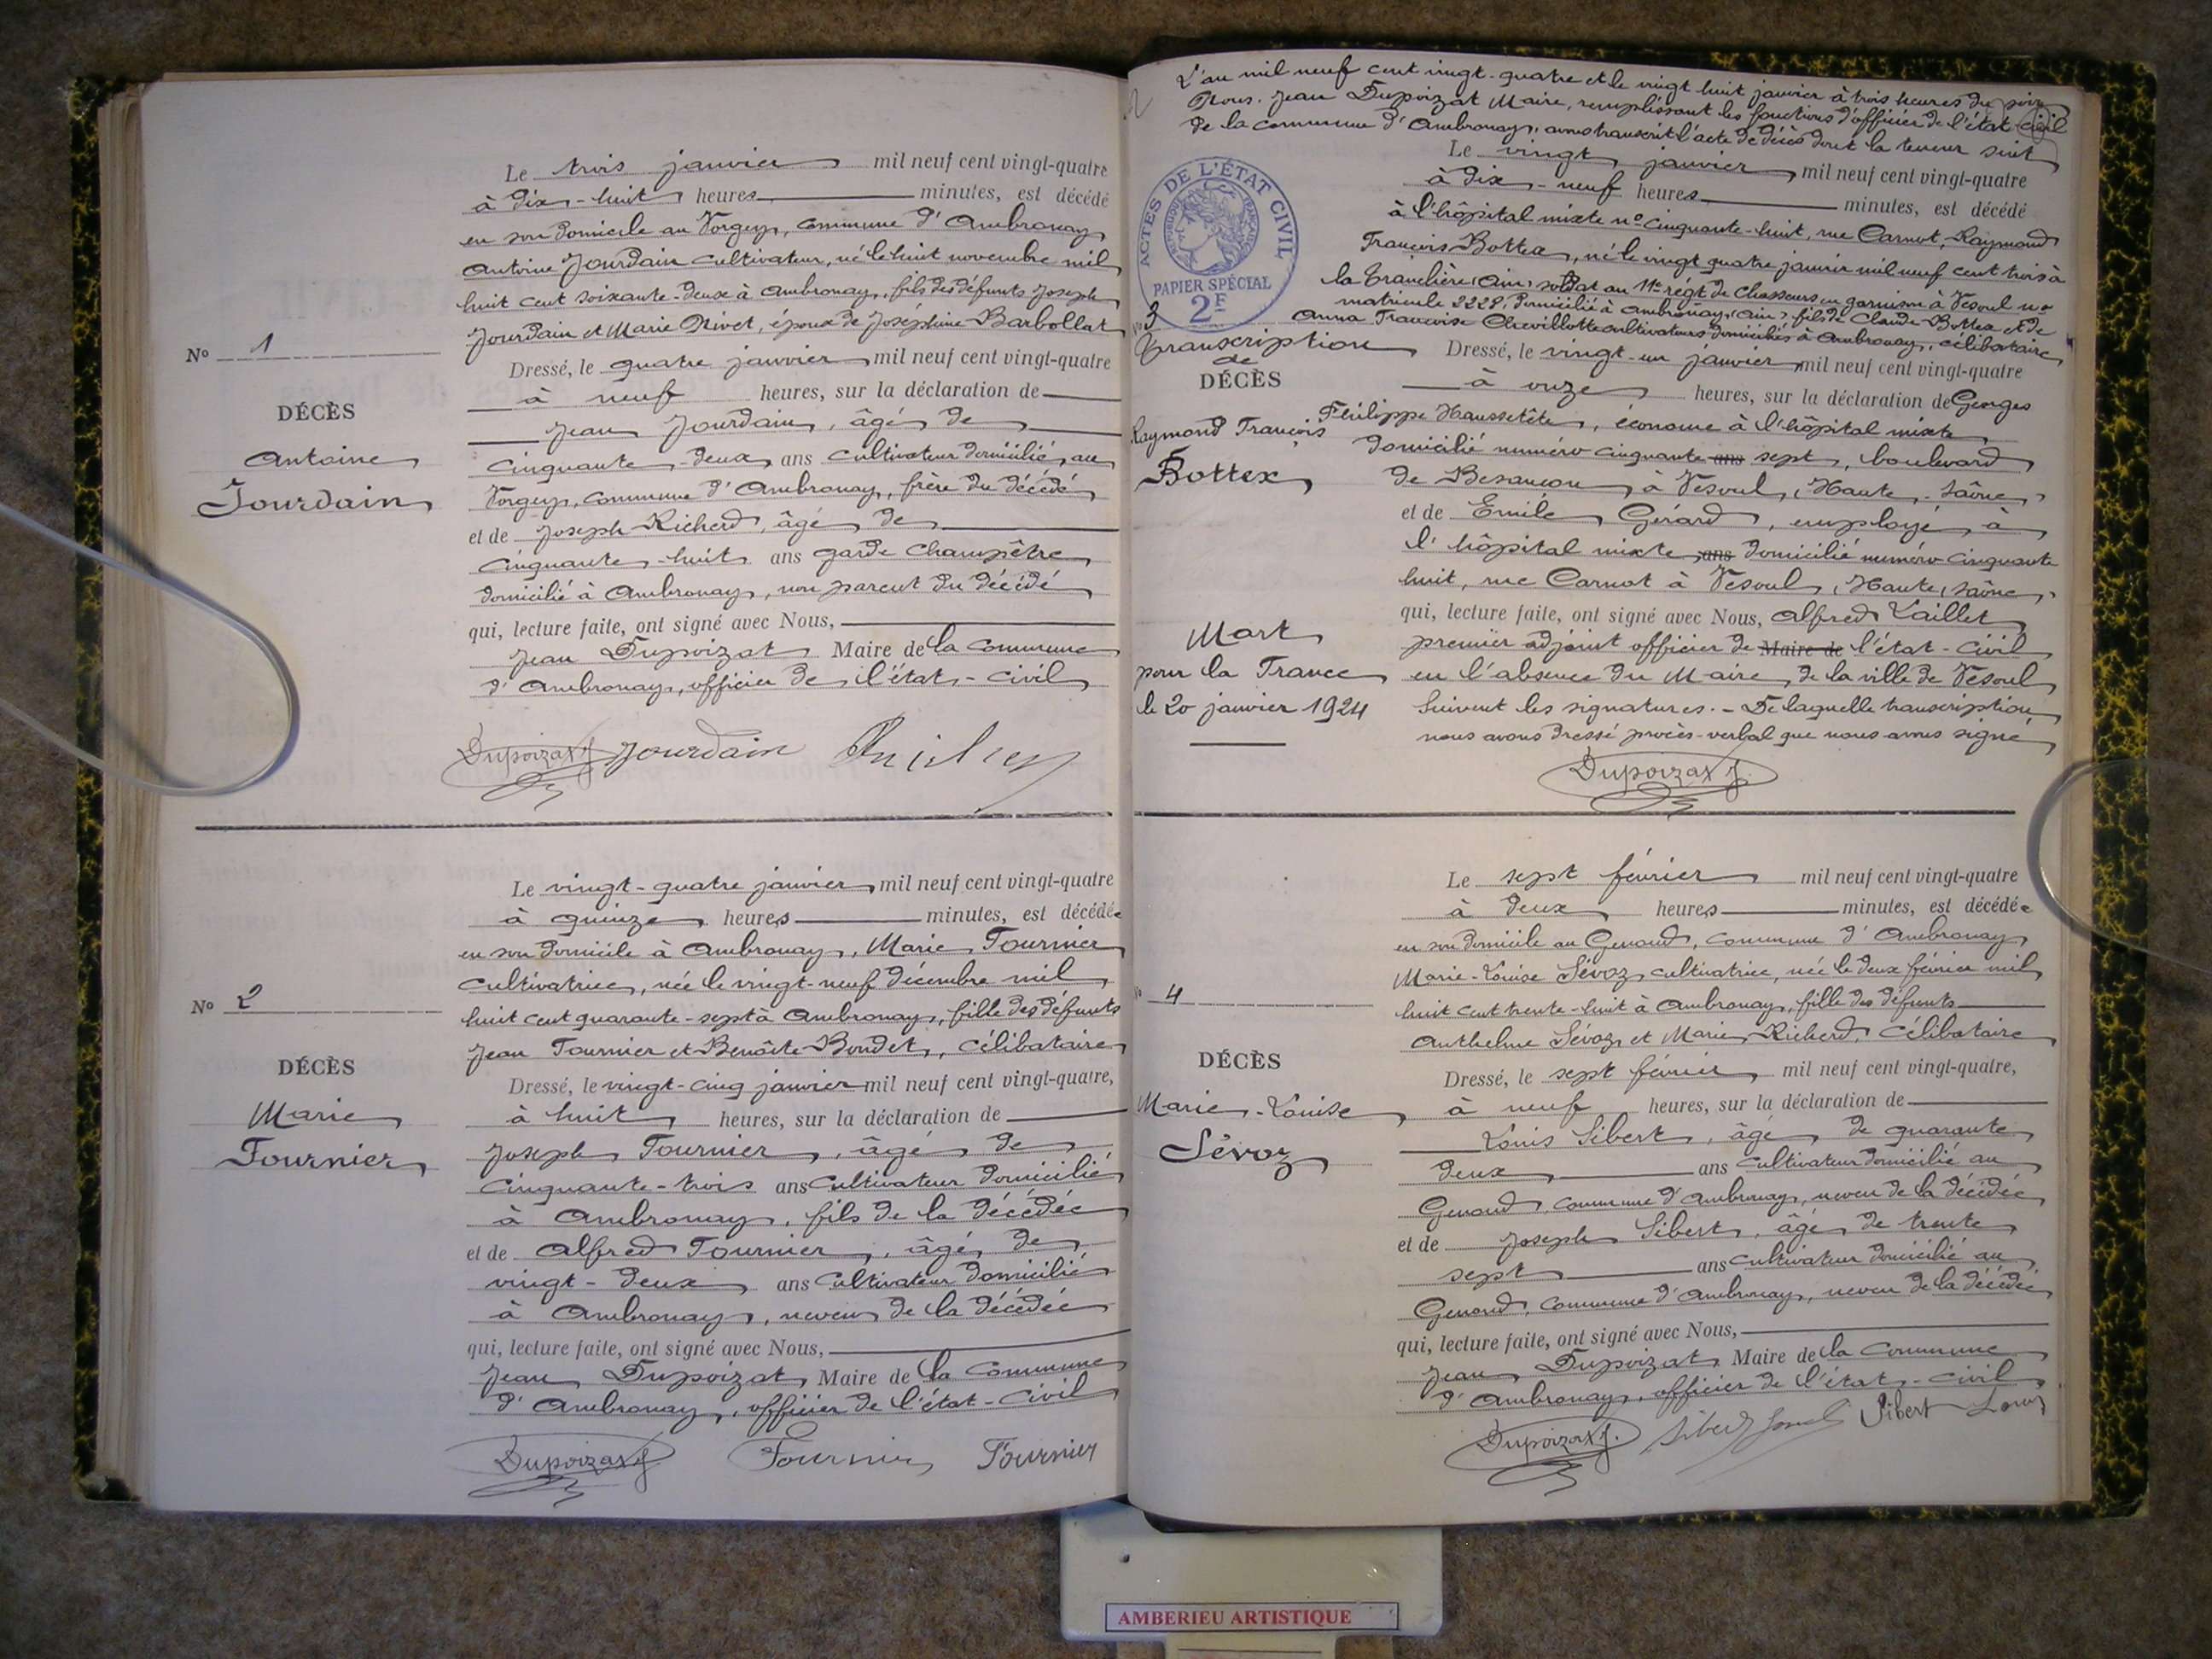 Le trois janvier mil neuf cent vingt-quatre
à dix-huit heures minutes, est décédé
en son domicile au Vorgey, commune d'Ambronay
Antoine Jourdain cultivateur, né le huit novembre mil
huit cent soixante-deux à Ambronay, fils des défunts Joseph
Jourdain et Marie Nivet, époux de Joséphine Barbollat
No 1
DÉCÈS
Antoine
Jourdain
Dressé, le quatre janvier mil neuf cent vingt-quatre
à neuf heures, sur la déclaration de
Jean Jourdain, âgé de
cinquante-deux ans cultivateur domicilié au
Vorgey, commune d'Ambronay, frère du décédé
et de Joseph Richerd, âgé de
cinquante-huit ans garde champêtre
domicilié à Ambronay, non parent du décédé
qui, lecture faite, ont signé avec Nous,
Jean Dupoizat Maire de la commune
d'Ambronay, officier de l'état-civil
Dupoizat J Jourdain
Le vingt-quatre janvier mil neuf cent vingt-quatre
à quinze heures minutes, est décédée
en son domicile à Ambronay, Marie Fournier
cultivatrice, née le vingt-neuf décembre mil
huit cent quarante-sept à Ambronay, fille des défunts
Jean Fournier et Benoîte Bondet, célibataire
No 2
DÉCÈS
Marie
Fournier
Dressé, le vingt-cinq janvier mil neuf cent vingt-quatre,
à huit heures, sur la déclaration de
Joseph Fournier, âgé de
cinquante-trois ans cultivateur domicilié
à Ambronay, fils de la décédée
et de Alfred Fournier, âgé de
vingt-deux ans cultivateur domicilié
à Ambronay, neveu de la décédée
qui, lecture faite, ont signé avec Nous,
Jean Dupoizat Maire de la commune
d'Ambronay, officier de l'état-civil
Dupoizat J Fournier Fournier
L'an mil neuf cent vingt-quatre et le vingt huit janvier à trois heures du soir
Nous Jean Dupoizat Maire, remplissant les fonctions d'officier de l'état-civil
de la commune d'Ambronay, avons transcrit l'acte de décès dont la teneur suit
ACTES DE L'ÉTAT CIVIL
RÉPUBLIQUE FRANÇAISE
PAPIER SPÉCIAL
2F
Le vingt janvier mil neuf cent vingt-quatre
à dix-neuf heures minutes, est décédé
à l'hôpital mixte no cinquante-huit, rue Carnot, Raymond
François Bottex, né le vingt quatre janvier mil neuf cent trois à
la Tranclière (Ain) soldat au 11e régt de Chasseurs en garnison à Vesoul no
matricule 2228, domicilié à Ambronay, (Ain), fils de Claude Bottex et de
Anna Françoise Chevillotte cultivateurs domiciliés à Ambronay, célibataire
No 3
Transcription
de
DÉCÈS
Raymond François
Bottex
Mort
pour la France
le 20 janvier 1924
Dressé, le vingt-un janvier mil neuf cent vingt-quatre
à onze heures, sur la déclaration de Georges
Philippe Haussetête, économe à l'hôpital mixte
domicilié numéro cinquante ans sept, boulevard
de Besançon, à Vesoul, (Haute-Saône)
et de Emile Gérard, employé à
l'hôpital mixte ans domicilié numéro cinquante
huit, rue Carnot à Vesoul, (Haute Saône)
qui, lecture faite, ont signé avec Nous, Alfred Vaillet
premier adjoint officier de Maire de l'état-civil
en l'absence du Maire, de la ville de Vesoul
Suivent les signatures. - De laquelle transcription
nous avons dressé procès-verbal que nous avons signé
Dupoizat J.
Le sept février mil neuf cent vingt-quatre
à deux heures minutes, est décédée
en son domicile au Genoud, commune d'Ambronay
Marie-Louise Sévoz cultivatrice, née le deux février mil
huit cent trente-huit à Ambronay, fille des défunts
Anthelme Sévoz et Marie Richerd, célibataire
No 4
DÉCÈS
Marie-Louise
Sévoz
Dressé, le sept février mil neuf cent vingt-quatre,
à neuf heures, sur la déclaration de
Louis Sibert, âgé de quarante
deux ans cultivateur domicilié au
Genoud, commune d'Ambronay, neveu de la décédée
et de Joseph Sibert, âgé de trente
sept ans cultivateur domicilié au
Genoud, commune d'Ambronay, neveu de la décédée
qui, lecture faite, ont signé avec Nous,
Jean Dupoizat Maire de la commune
d'Ambronay, officier de l'état-civil
Dupoizat J. Sibert Sibert Louis
AMBERIEU ARTISTIQUE